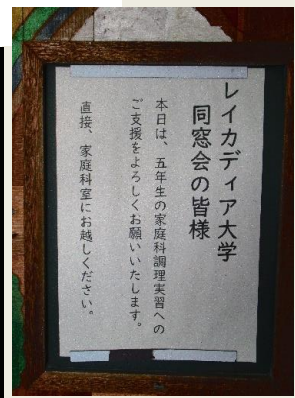 レイカディア大学
同窓会の皆様
本日は、五年生の家庭科調理実習への
ご支援をよろしくお願いいたします。
直接、家庭科室にお越しください。